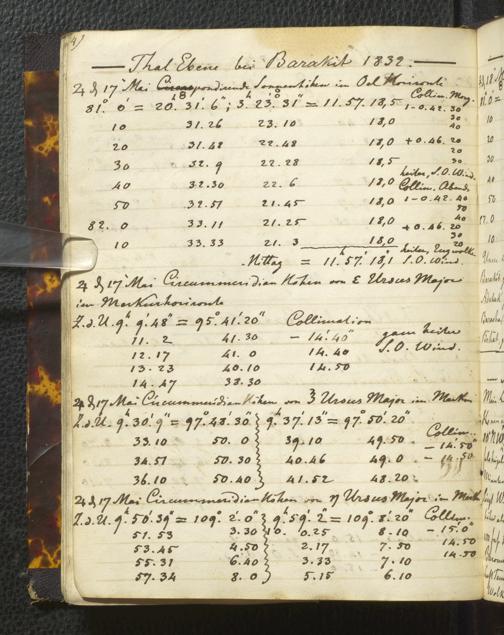 4)
Thal Ebene bei Barakit 1832.
♃ d 17 Mai Correspondirende Sonnenhöhen im Oel Horizonte
Collim. Morg.
81° 0' = 20. 31. 6 ; 3. 23. 31" = 11. 57. 18,5 1-0.42.30
10 31.26 23.10 18,0 40
20 31.48 22.48 18,0 +0.46.20
30 32.9 22.28 18,5
heiter, S.O. Wind.
40 32.30 22.6 18,0 Collim. Abends
50 32.51 21.45 18,0 1-0.42.40
82. 0 33.11 21.25 18,0 +0.46.20
10 33.33 21.3 18,0 heiter,
Mittag = 11h 57' 18,1 S.O. Wind.
♃ d 17 Mai Circummeridian Höhen von ε Ursus Major
im Merkurhorizonte
Z.d.U. 9h 9' 48" = 95° 41' 20" Collimation
ganz heiter
11. 2 41.30 - 14' 40"
S.O. Wind.
12.17 41. 0 14.40
13.23 40.10 14.50
14.47 38.30
♃ d 17 Mai Circummeridian Höhen von ζ Ursus Major im Merkur
Z.d.U. 9h 30' 9" = 97° 48' 30" 9h 37' 13" = 97° 50' 20"
33.10 50. 0 39.10 49.50 Collim.
- 14' 50"
34.51 50.30 40.46 49.0 - 14.50
36.10 50.40 41.52 48.20
♃ d 17 Mai Circummeridian Höhen von η Ursus Major im Merk
Z.d.U. 9h 50' 39" = 109° 2. 0" 9h 59' 2" = 109° 8' 20" Collim.
51.53 3.30 10. 0.25 8.10 - 15' 0"
53.45 4.50 2.17 7.50 14.50
55.31 6.40 3.33 7.10 14.50
57.34 8. 0 5.15 6.10